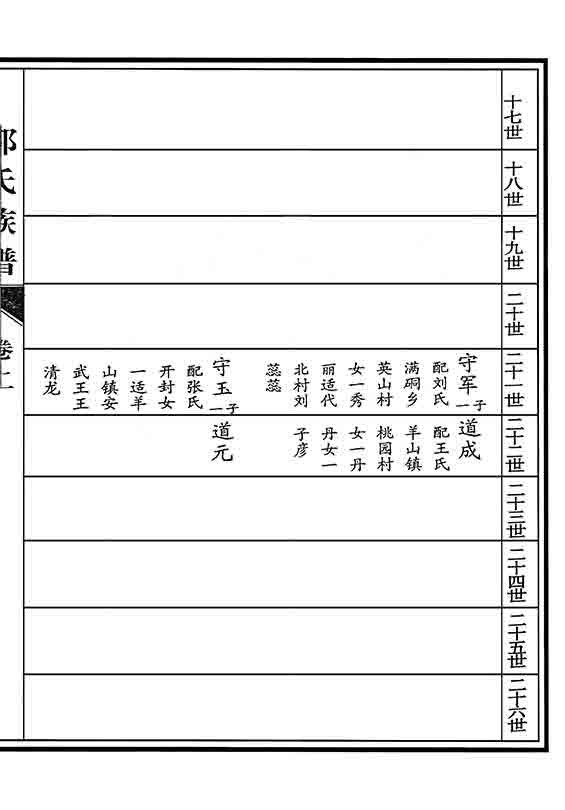 十七世
十八世
十九世
二十世
二十一世
守军
一子
配刘氏
满硐乡
英山村
女一秀
丽适代
北村刘
蕊蕊
守玉
一子
配张氏
开封女
一适羊
山镇安
武王王
清龙
二十二世
道成
配王氏
羊山镇
桃园村
女一丹
丹女一
子彦
道元
二十三世
二十四世
二十五世
二十六世
氏族谱